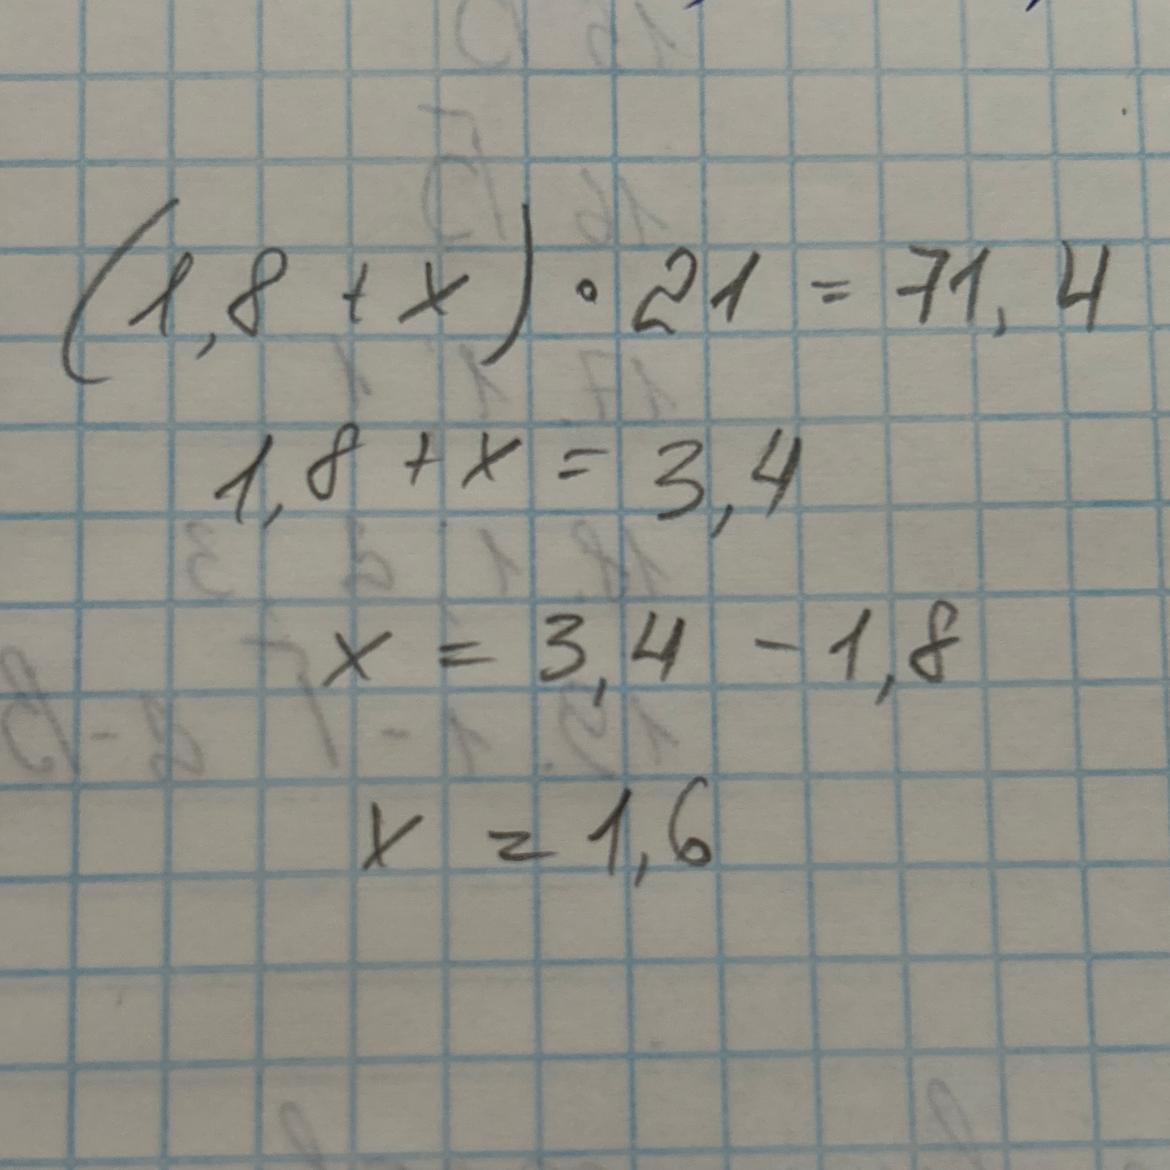 (1,8 + x) • 21 = 71,4
1,8 + x = 3,4
x = 3,4 - 1,8
x = 1,6